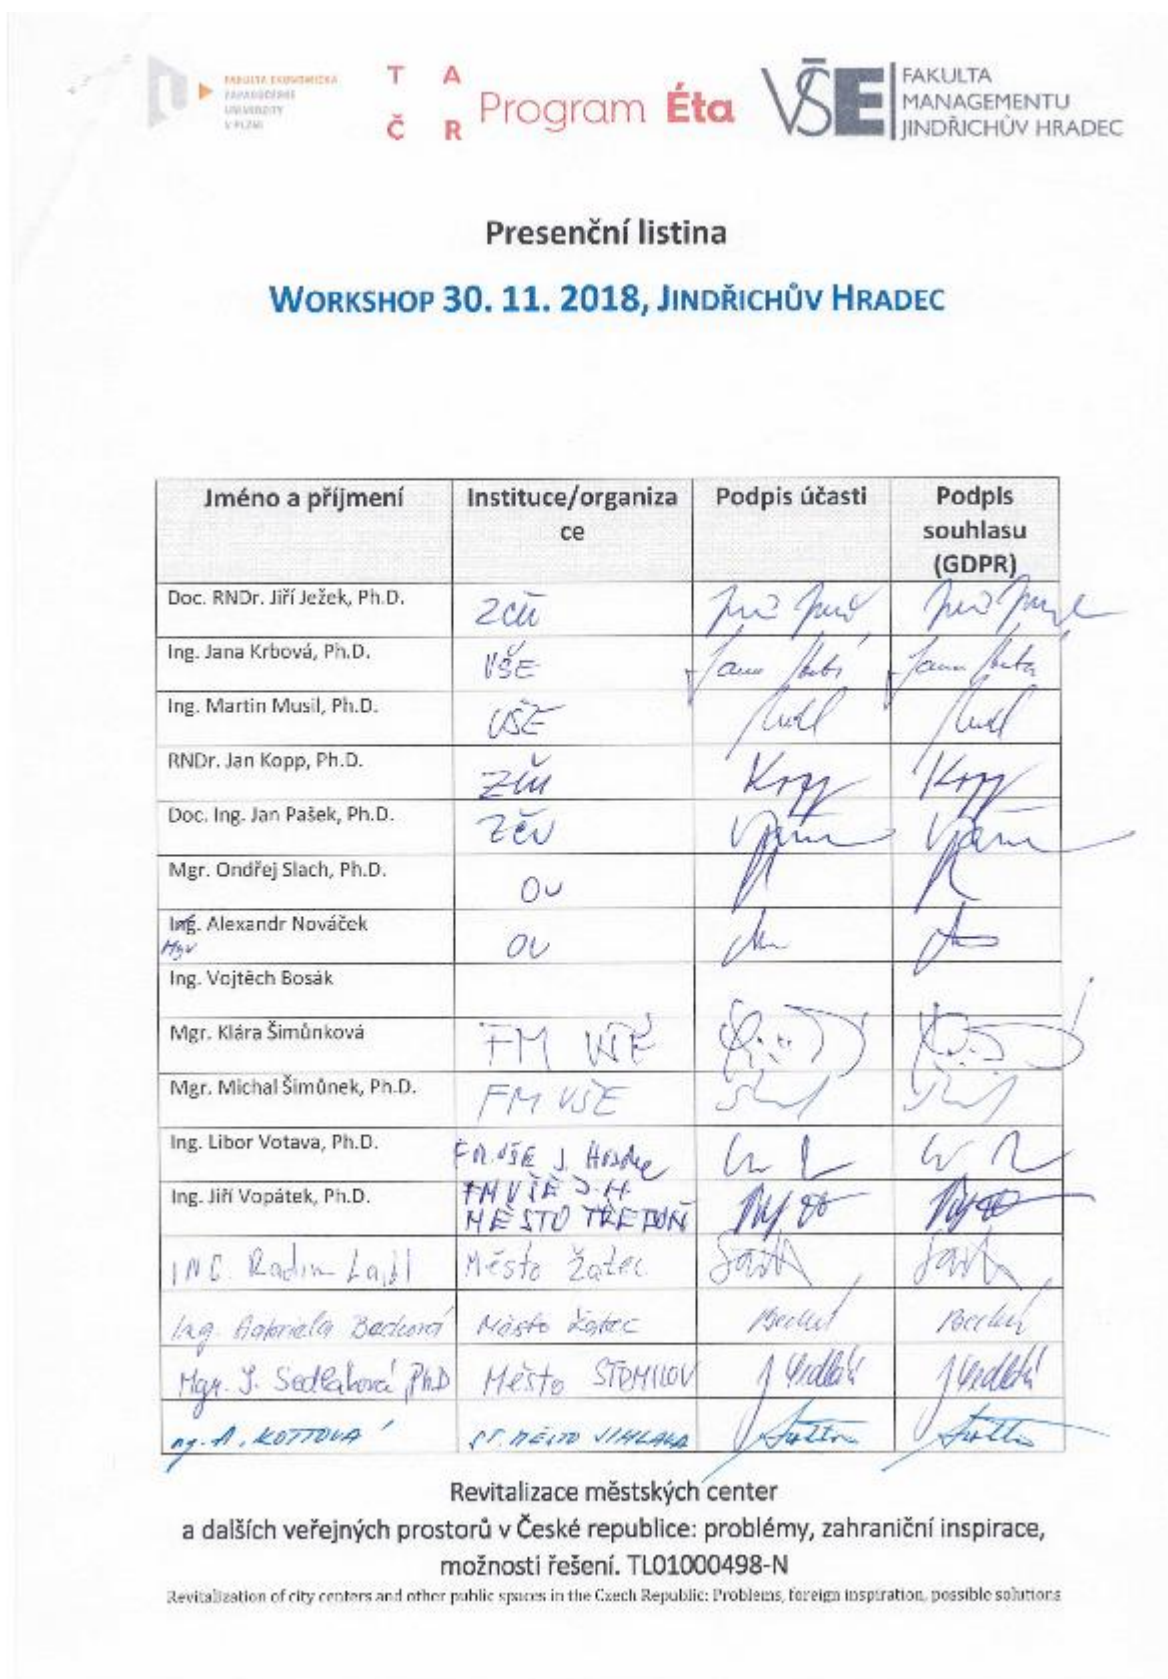 FAKULTA EKONOMICKÁ
ZÁPADOČESKÉ
UNIVERZITY
V PLZNI
T A
Č R
Program Éta
VŠE
FAKULTA
MANAGEMENTU
JINDŘICHŮV HRADEC
Presenční listina
WORKSHOP 30. 11. 2018, JINDŘICHŮV HRADEC
Jméno a příjmení Instituce/organiza Podpis účasti Podpis
ce souhlasu
(GDPR)
Doc. RNDr. Jiří Ježek, Ph.D. ZČU
Ing. Jana Krbová, Ph.D. VŠE
Ing. Martin Musil, Ph.D. VŠE
RNDr. Jan Kopp, Ph.D. ZČU Kopp Kopp
Doc. Ing. Jan Pašek, Ph.D. ZČU
Mgr. Ondřej Slach, Ph.D. OU
Ing. Alexandr Nováček OU
Mgr
Ing. Vojtěch Bosák
Mgr. Klára Šimůnková FM VŠE
Mgr. Michal Šimůnek, Ph.D. FM VŠE
Ing. Libor Votava, Ph.D. FM VŠE J. Hradec
Ing. Jiří Vopátek, Ph.D. FM VŠE J.H.
MĚSTO TŘEBOŇ
ING. Radim Město Žatec
Ing. Gabriela Město Žatec
Mgr. J. Sedláková, PhD Město STONAŘOV
Ing. A. KOTTOVÁ ST. MĚSTO JIHLAVA
Revitalizace městských center
a dalších veřejných prostorů v České republice: problémy, zahraniční inspirace,
možnosti řešení. TL01000498-N
Revitalization of city centers and other public spaces in the Czech Republic: Problems, foreign inspiration, possible solutions